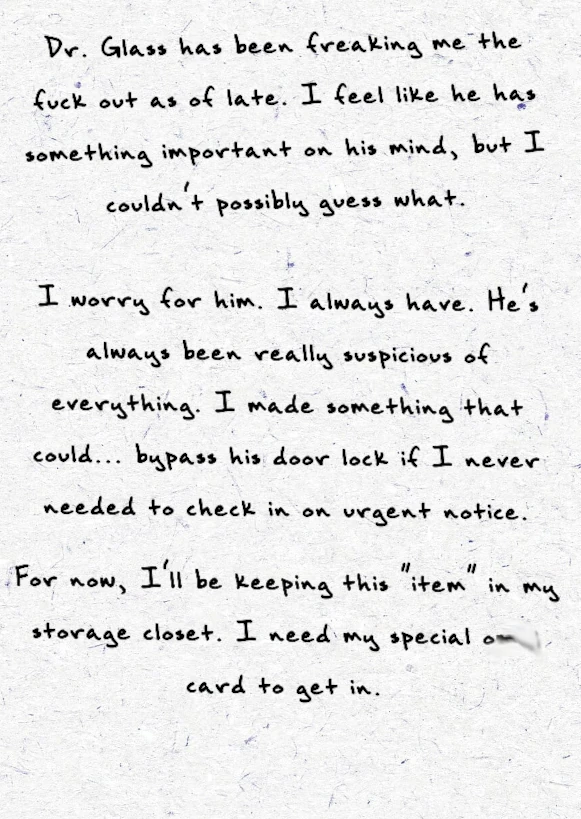 Dr. Glass has been freaking me the
fuck out as of late. I feel like he has
something important on his mind, but I
couldn't possibly guess what.
I worry for him. I always have. He's
always been really suspicious of
everything. I made something that
could... bypass his door lock if I never
needed to check in on urgent notice.
For now, I'll be keeping this "item" in my
storage closet. I need my special
card to get in.